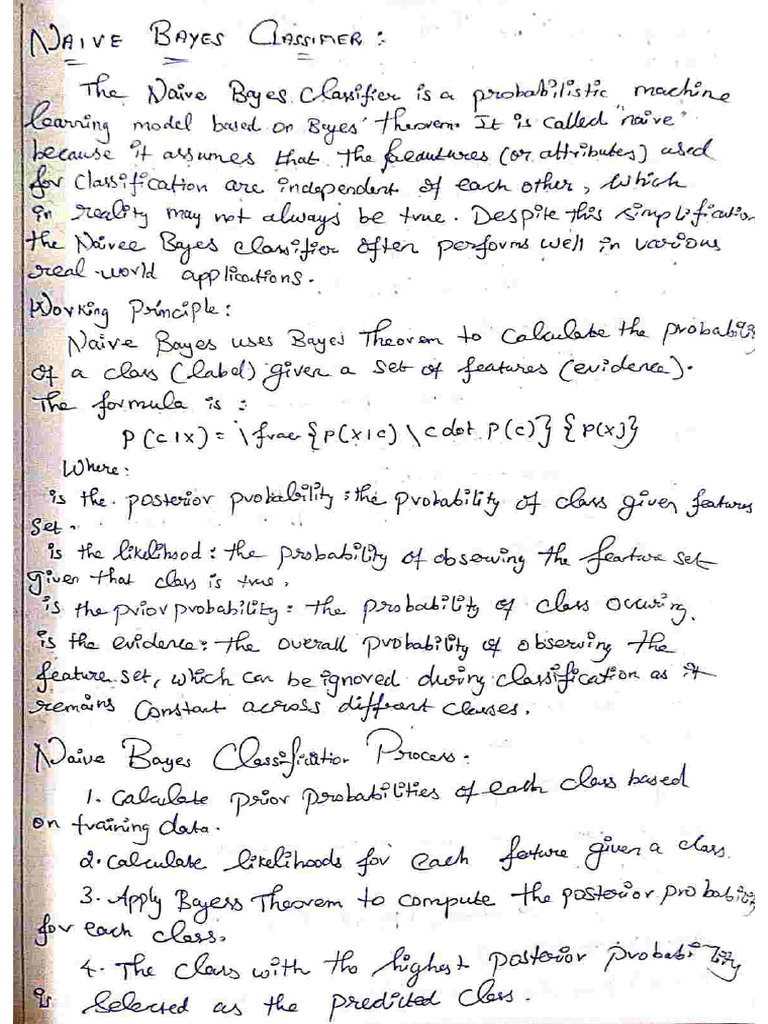 NAIVE BAYES CLASSIFIER:
The Naive Bayes Classifier is a probabilistic machine
learning model based on Bayes' theorem. It is called "naive"
because it assumes that the feadutures (or attributes) used
for classification are independent of each other, which
in reality may not always be true. Despite this simplification
the Naivee Bayes classifier often performs well in various
real-world applications.
Working Principle:
Naive Bayes uses Bayes Theorem to calculate the probability
of a class (label) given a set of features (evidence).
The formula is:
P(c|x) = \frac{P(x|c) \cdot P(c)}{P(x)}
Where:
is the posterior probability: the probability of class given features
set.
is the likelihood: the probability of observing the feature set
given that class is true.
is the prior probability: the probability of class occuring.
is the evidence: the overall probability of observing the
feature set, which can be ignored during classification as it
remains constant across diffrent classes.
Naive Bayes Classification Process.
1. Calculate prior probabilities of each class based
on training data.
2. Calculate likelihoods for each feature given a class.
3. Apply Bayess Theorem to compute the posterior probability
for each class.
4. The class with the highest posterior probability
is selected as the predicted class.